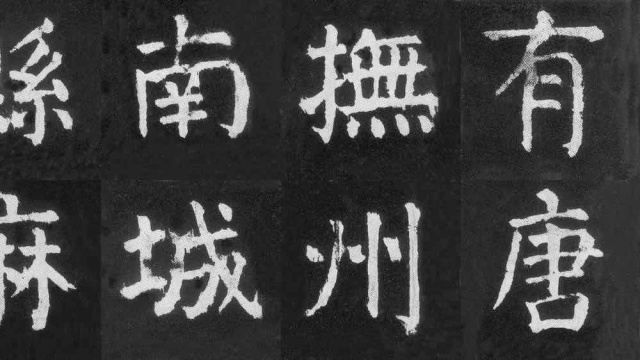 有唐
撫州
南城
縣麻